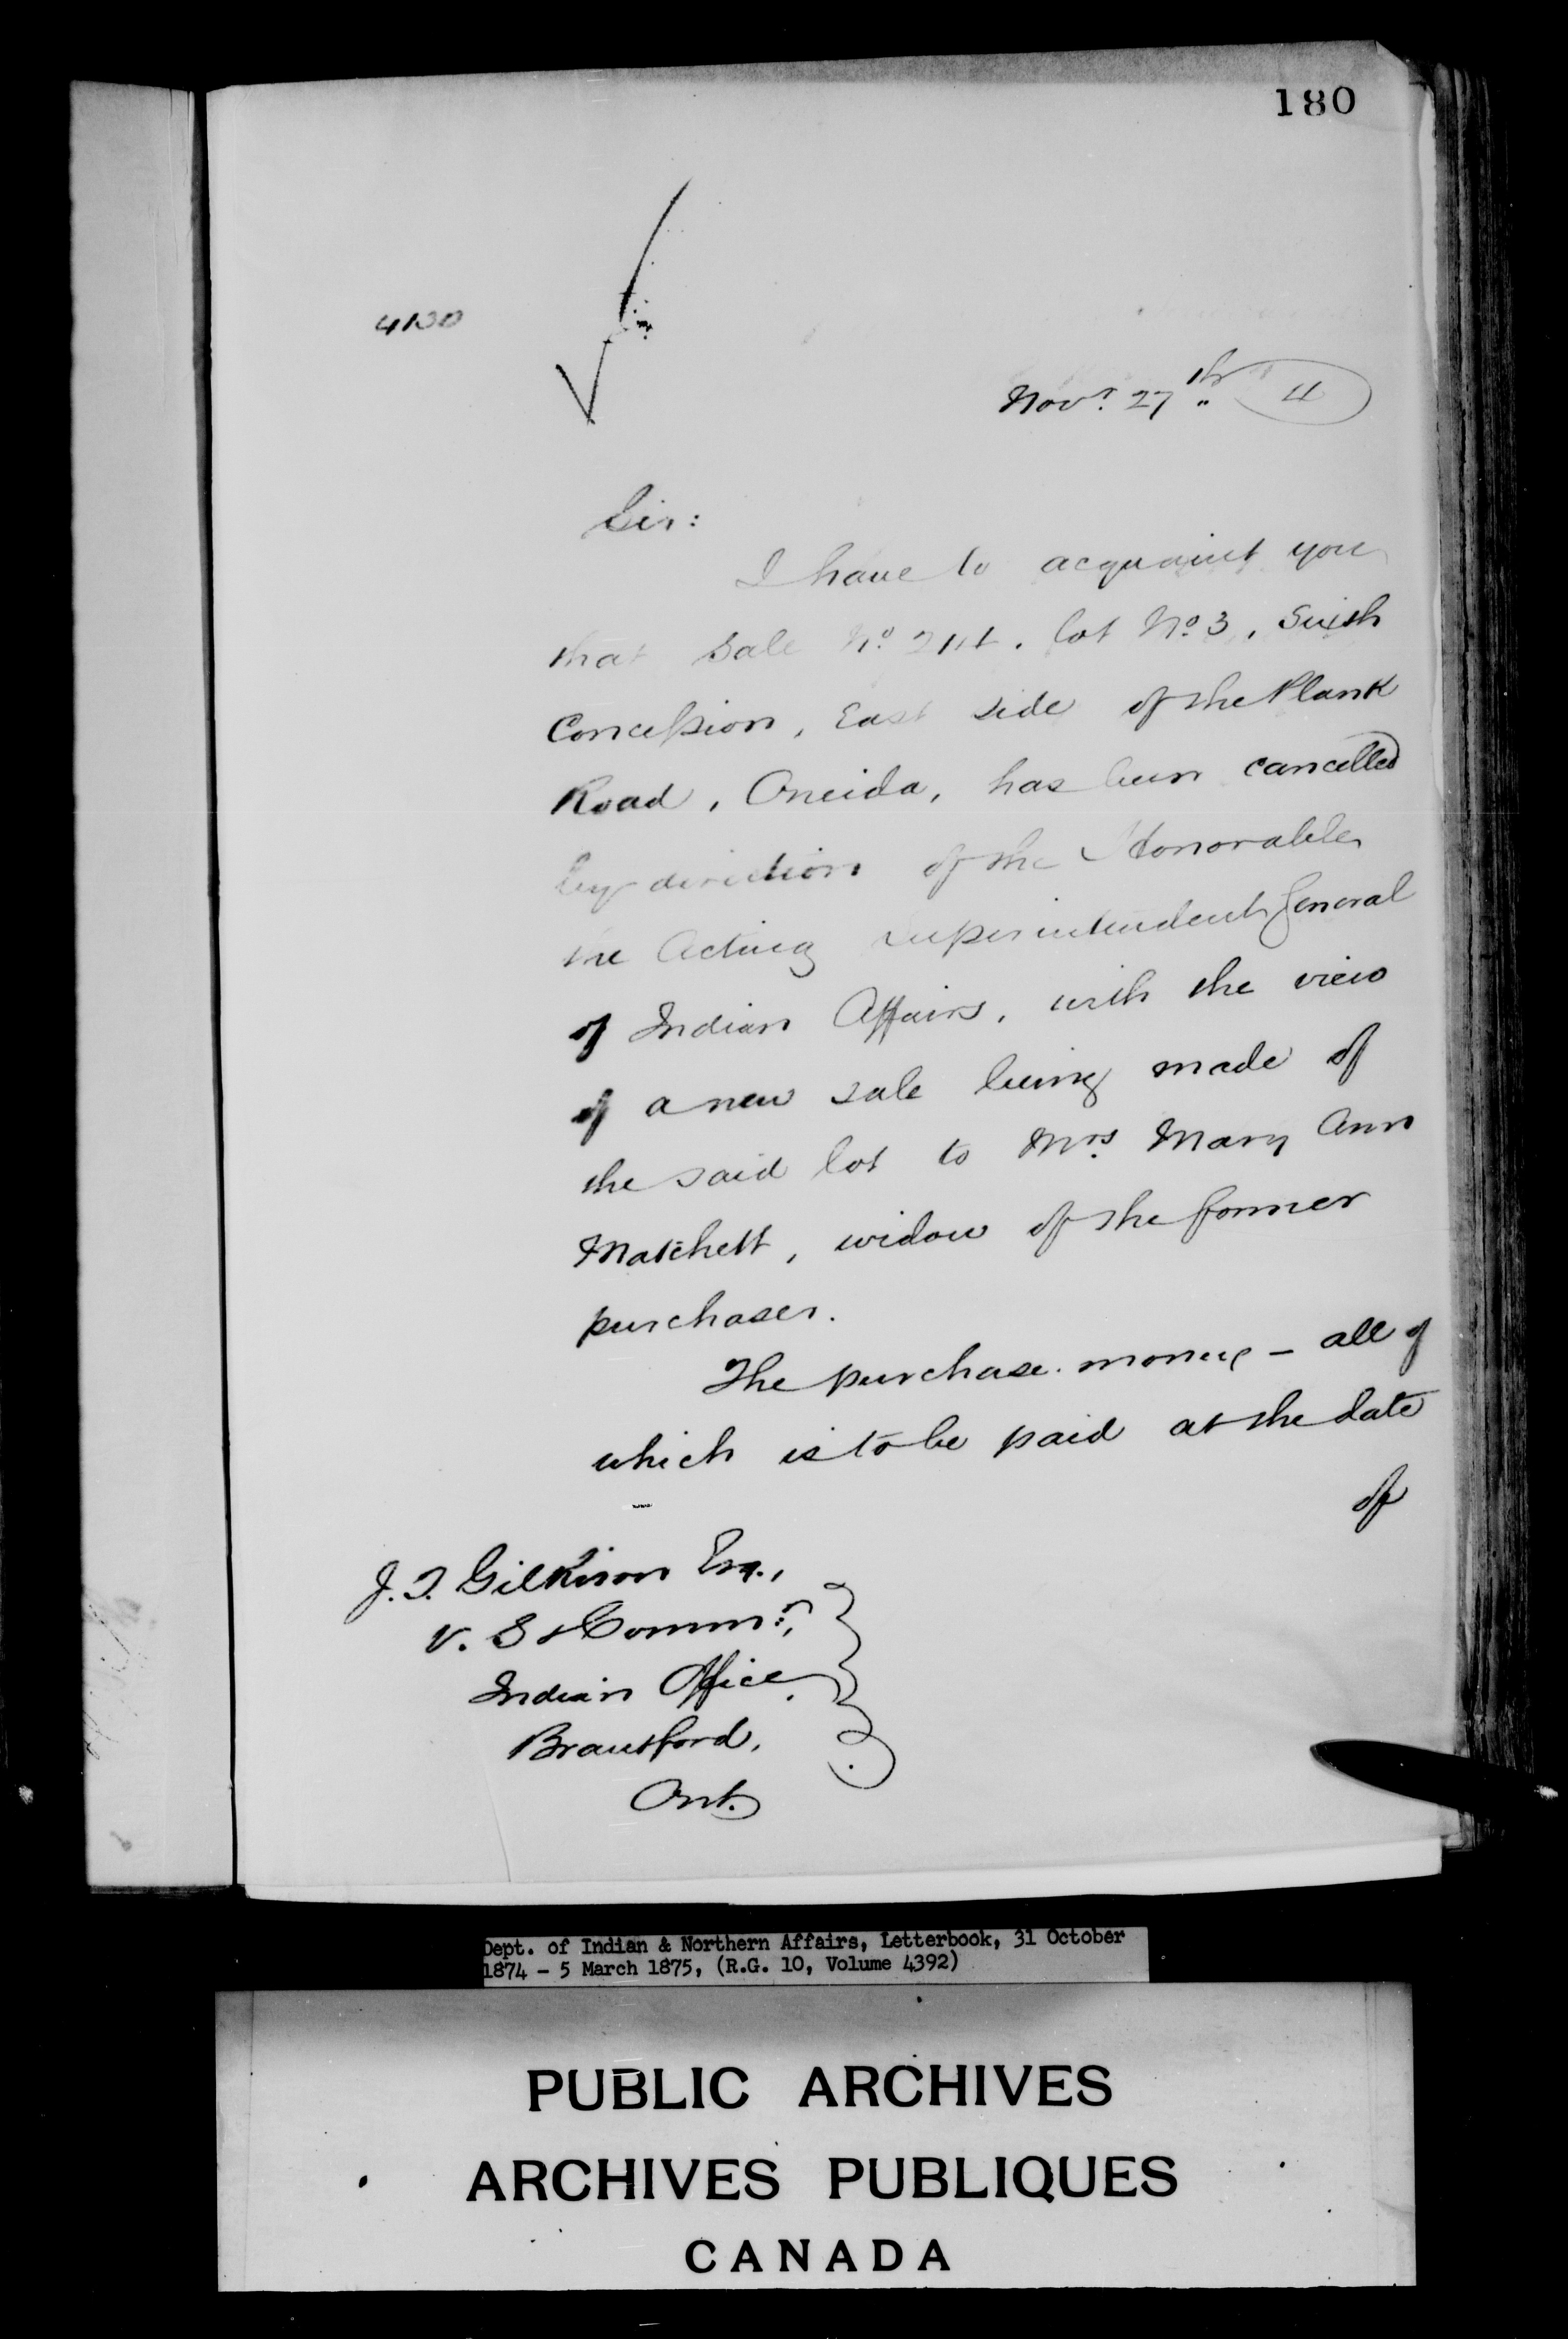 180
4130
Novr. 27th 4
Sir:
I have to acquaint you
that Sale No. lot No. 3, Sixth
Concession, East side of the Plank
Road, Oneida, has been cancelled
by direction of the Honorable
the Acting Superintendent General
of Indian Affairs, with the view
of a new sale being made of
the said lot to Mrs. Mary Ann
Matchett, widow of the former
purchaser.
The purchase money – all of
which is to be paid at the date
of
J. T. Gilkison Esq.,
V. S & Commr.,
Indian Office,
Brantford,
Ont.
Dept. of Indian & Northern Affairs, Letterbook, 31 October
1874 - 5 March 1875, (R.G. 10, Volume 4392)
PUBLIC ARCHIVES
ARCHIVES PUBLIQUES
CANADA